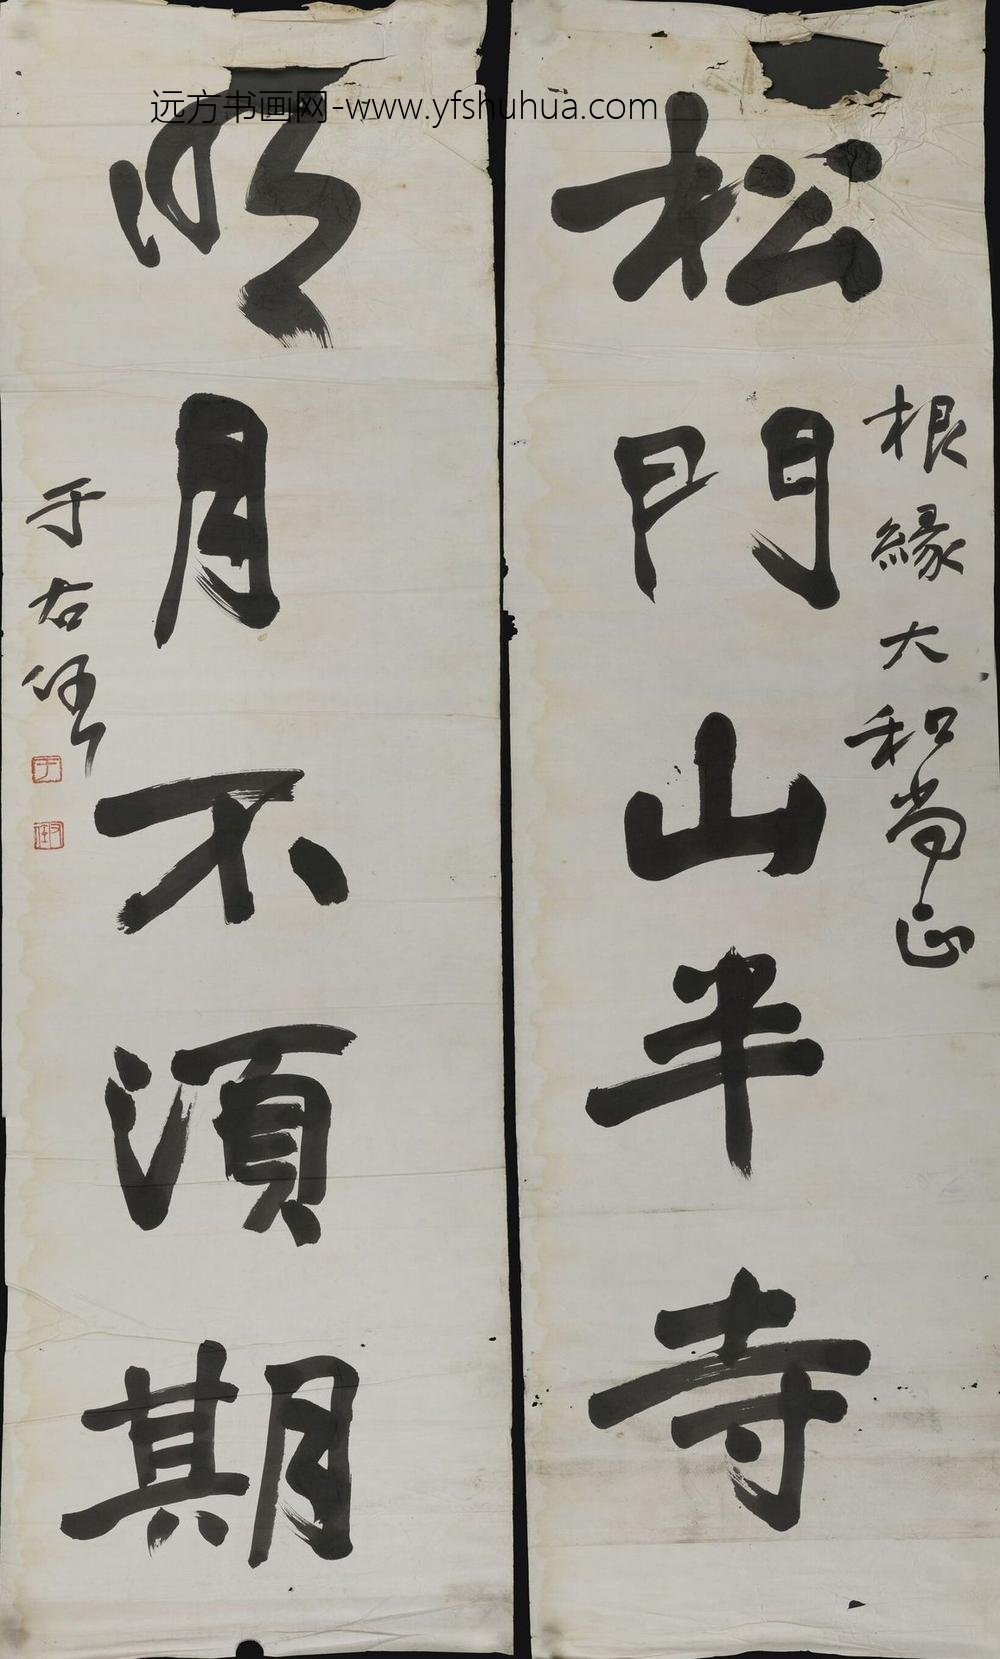 远方书画网-www.yfshuhua.com
根緣大和尚正
松門山半寺
明月不須期
于右任
于
右任